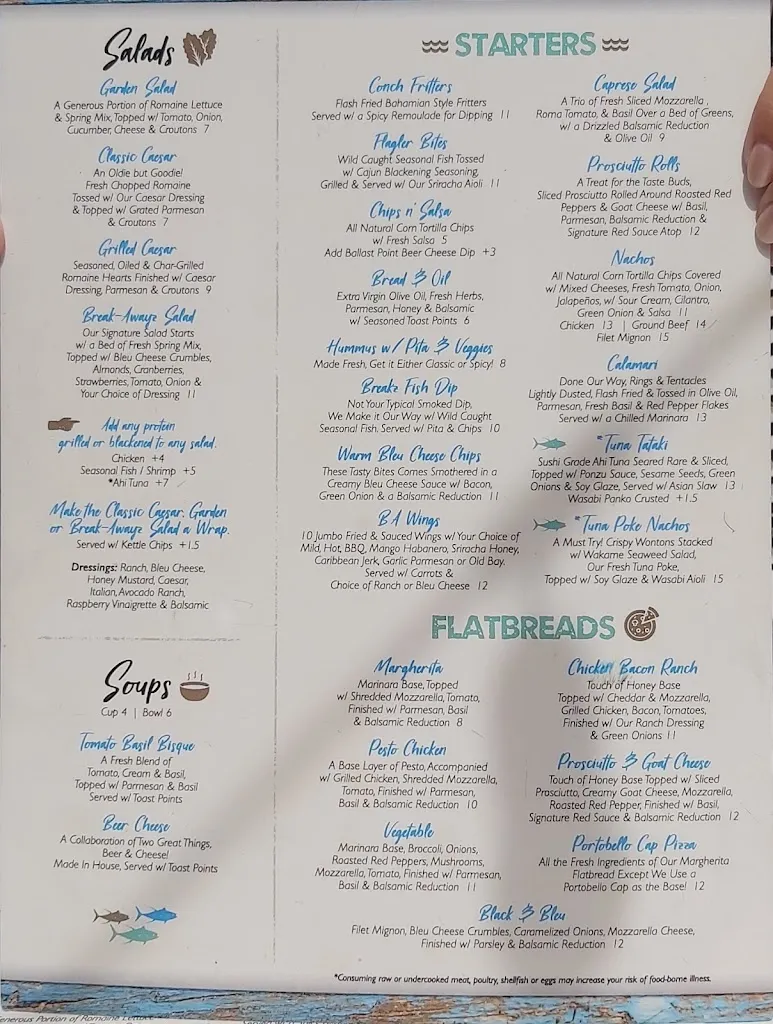 Salads
Garden Salad
A Generous Portion of Romaine Lettuce
& Spring Mix, Topped w/ Tomato, Onion,
Cucumber, Cheese & Croutons 7
Classic Caesar
An Oldie but Goodie!
Fresh Chopped Romaine
Tossed w/ Our Caesar Dressing
& Topped w/ Grated Parmesan
& Croutons 7
Grilled Caesar
Seasoned, Oiled & Char-Grilled
Romaine Hearts Finished w/ Caesar
Dressing, Parmesan & Croutons 9
Break-Awayz Salad
Our Signature Salad Starts
w/ a Bed of Fresh Spring Mix,
Topped w/ Bleu Cheese Crumbles,
Almonds, Cranberries,
Strawberries, Tomato, Onion &
Your Choice of Dressing 11
Add any protein
grilled or blackened to any salad.
Chicken +4
Seasonal Fish / Shrimp +5
*Ahi Tuna +7
Make the Classic Caesar, Garden
or Break-Awayz Salad a Wrap.
Served w/ Kettle Chips +1.5
Dressings: Ranch, Bleu Cheese,
Honey Mustard, Caesar,
Italian, Avocado Ranch,
Raspberry Vinaigrette & Balsamic
Soups
Cup 4 | Bowl 6
Tomato Basil Bisque
A Fresh Blend of
Tomato, Cream & Basil,
Topped w/ Parmesan & Basil
Served w/ Toast Points
Beer Cheese
A Collaboration of Two Great Things,
Beer & Cheese!
Made In House, Served w/ Toast Points
STARTERS
Conch Fritters
Flash Fried Bahamian Style Fritters
Served w/ a Spicy Remoulade for Dipping 11
Flagler Bites
Wild Caught Seasonal Fish Tossed
w/ Cajun Blackening Seasoning,
Grilled & Served w/ Our Sriracha Aioli 11
Chips n' Salsa
All Natural Corn Tortilla Chips
w/ Fresh Salsa 5
Add Ballast Point Beer Cheese Dip +3
Bread & Oil
Extra Virgin Olive Oil, Fresh Herbs,
Parmesan, Honey & Balsamic
w/ Seasoned Toast Points 6
Hummus w/ Pita & Veggies
Made Fresh, Get it Either Classic or Spicy! 8
Breakz Fish Dip
Not Your Typical Smoked Dip,
We Make it Our Way w/ Wild Caught
Seasonal Fish. Served w/ Pita & Chips 10
Warm Bleu Cheese Chips
These Tasty Bites Comes Smothered in a
Creamy Bleu Cheese Sauce w/ Bacon,
Green Onion & a Balsamic Reduction 11
BA Wings
10 Jumbo Fried & Sauced Wings w/ Your Choice of
Mild, Hot, BBQ, Mango Habanero, Sriracha Honey,
Caribbean Jerk, Garlic Parmesan or Old Bay.
Served w/ Carrots &
Choice of Ranch or Bleu Cheese 12
Caprese Salad
A Trio of Fresh Sliced Mozzarella ,
Roma Tomato, & Basil Over a Bed of Greens,
w/ a Drizzled Balsamic Reduction
& Olive Oil 9
Prosciutto Rolls
A Treat for the Taste Buds,
Sliced Prosciutto Rolled Around Roasted Red
Peppers & Goat Cheese w/ Basil,
Parmesan, Balsamic Reduction &
Signature Red Sauce Atop 12
Nachos
All Natural Corn Tortilla Chips Covered
w/ Mixed Cheeses, Fresh Tomato, Onion,
Jalapeños, w/ Sour Cream, Cilantro,
Green Onion & Salsa 11
Chicken 13 | Ground Beef 14
Filet Mignon 15
Calamari
Done Our Way, Rings & Tentacles
Lightly Dusted, Flash Fried & Tossed in Olive Oil,
Parmesan, Fresh Basil & Red Pepper Flakes
Served w/ a Chilled Marinara 13
*Tuna Tataki
Sushi Grade Ahi Tuna Seared Rare & Sliced,
Topped w/ Ponzu Sauce, Sesame Seeds, Green
Onions & Soy Glaze, Served w/ Asian Slaw 13
Wasabi Panko Crusted +1.5
*Tuna Poke Nachos
A Must Try! Crispy Wontons Stacked
w/ Wakame Seaweed Salad,
Our Fresh Tuna Poke,
Topped w/ Soy Glaze & Wasabi Aioli 15
FLATBREADS
Margherita
Marinara Base, Topped
w/ Shredded Mozzarella, Tomato,
Finished w/ Parmesan, Basil
& Balsamic Reduction 8
Pesto Chicken
A Base Layer of Pesto, Accompanied
w/ Grilled Chicken, Shredded Mozzarella,
Tomato, Finished w/ Parmesan,
Basil & Balsamic Reduction 10
Vegetable
Marinara Base, Broccoli, Onions,
Roasted Red Peppers, Mushrooms,
Mozzarella, Tomato, Finished w/ Parmesan,
Basil & Balsamic Reduction 11
Chicken Bacon Ranch
Touch of Honey Base
Topped w/ Cheddar & Mozzarella,
Grilled Chicken, Bacon, Tomatoes,
Finished w/ Our Ranch Dressing
& Green Onions 11
Prosciutto & Goat Cheese
Touch of Honey Base Topped w/ Sliced
Prosciutto, Creamy Goat Cheese, Mozzarella,
Roasted Red Pepper, Finished w/ Basil,
Signature Red Sauce & Balsamic Reduction 12
Portobello Cap Pizza
All the Fresh Ingredients of Our Margherita
Flatbread Except We Use a
Portobello Cap as the Base! 12
Black & Bleu
Filet Mignon, Bleu Cheese Crumbles, Caramelized Onions, Mozzarella Cheese,
Finished w/ Parsley & Balsamic Reduction 12
*Consuming raw or undercooked meat, poultry, shellfish or eggs may increase your risk of food-borne illness.
enerous Portion of Romaine Lettuce